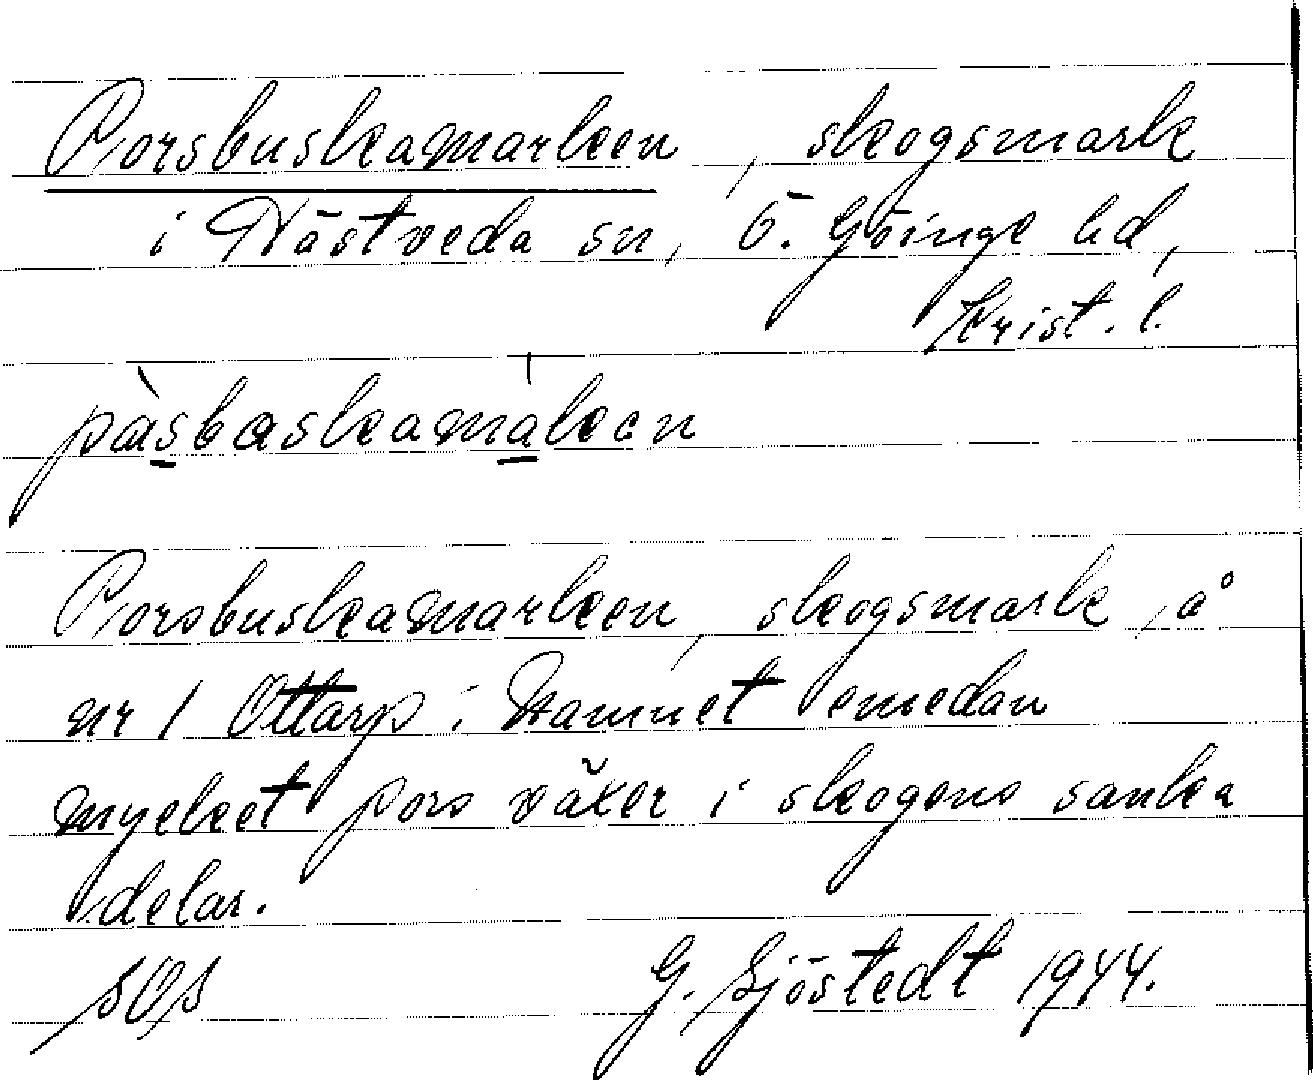 Porsbuskamarken, skogsmark
i Nästveda sn, Ö. Göinge hd,
Krist. l.
pàsbaskamákan
Porsbuskamarken, skogsmark, å
nr 1 Ottarp; Namnet emedan
mycket pors växer i skogens sanka
delar.
SOS G. Sjöstedt 1944.